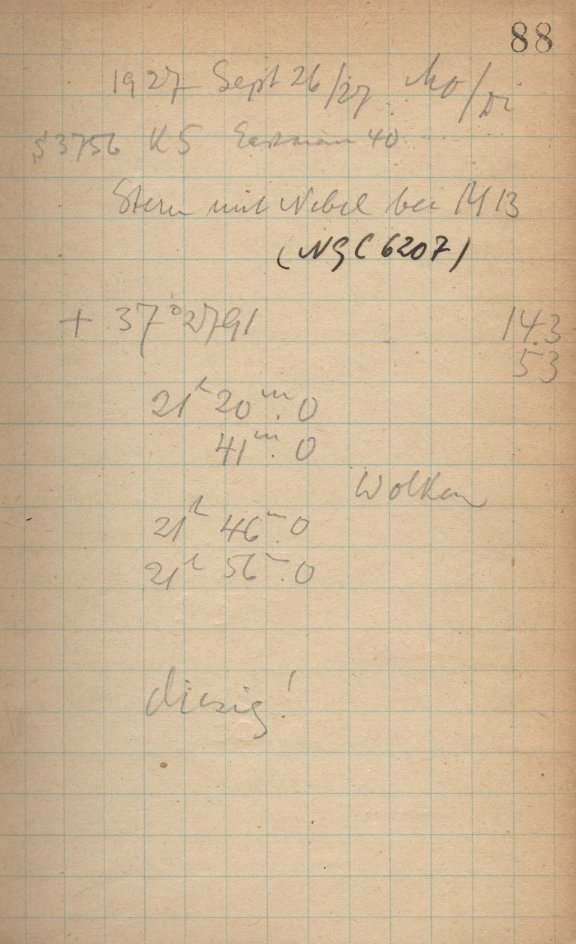 88
1927 Sept 26/27 Mo/Di
S 3756 K5 Eastman 40
Stern mit Nebel bei M 13
(NGC 6207)
+ 37° 2791 143
53
21ʰ 20ᵐ.0
41ᵐ.0
Wolken
21ʰ 46ᵐ.0
21ʰ 56ᵐ.0
diesig!